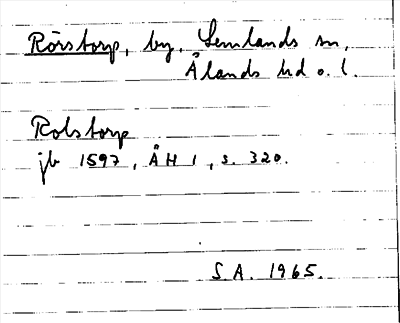 Rörstorp, by, Lemlands sn,
Ålands hd o. l.
Rolstorp
jb 1597, ÅH 1, s. 320.
S.A. 1965.